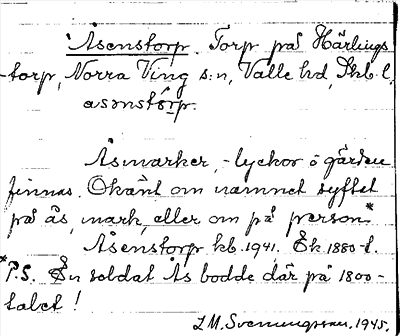 Åsenstorp. Torp på Härlings
-torp, Norra Ving s:n, Valle hd, Skb. l.
asənstórp.
Åsmarker, -lyckor o gärden
finnas. Okänt om namnet syftat
på ås, mark, eller om på person*
Åsenstorp kb. 1941. Ek 1880-t.
*P.S. En soldat Ås bodde där på 1800-
talet!
L M. Svenungsson. 1945.